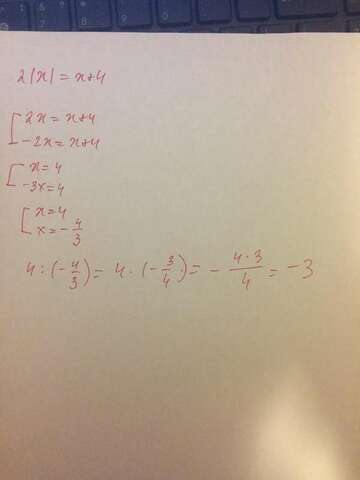 2|x| = x+4
[ 2x = x+4
-2x = x+4
[ x = 4
-3x = 4
[ x = 4
x = - 4/3
4 : (- 4/3) = 4 · (- 3/4) = - 4·3/4 = -3